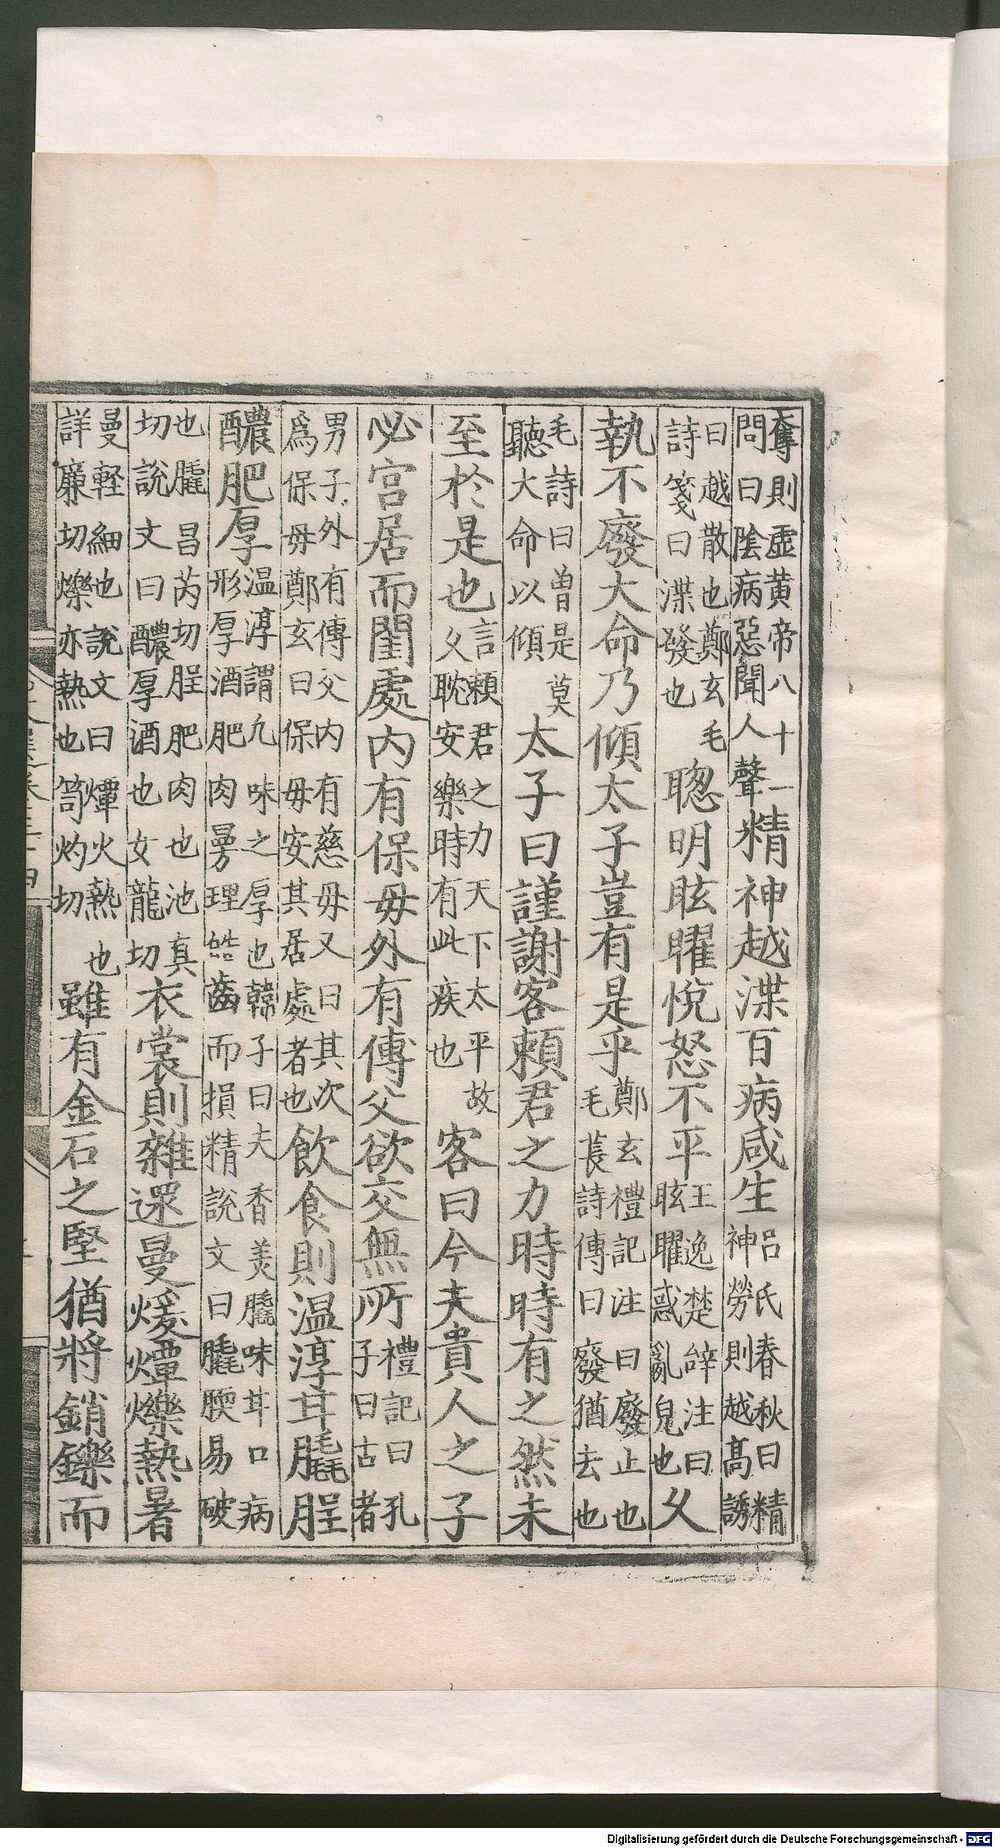 奪則虛黃帝八十一
問曰陰病惡聞人聲
精神越渫百病咸生
呂氏春秋曰精
神勞則越高誘
曰越散也鄭玄毛
詩箋曰渫發也
聦明眩曜悅怒不平
王逸楚辭注曰
眩曜惑亂皃也
乆
執不廢大命乃傾太子豈有是乎
鄭玄禮記注曰廢止也
毛萇詩傳曰廢猶去也
毛詩曰曾是莫
聽大命以傾
太子曰謹謝客賴君之力時時有之然未
至於是也
言賴君之力天下太平故
乆耽安樂時有此疾也
客曰今夫貴人之子
必宮居而閨處內有保毋外有傅父欲交無所
禮記曰孔
子曰古者
男子外有傅父內有慈毋又曰其次
爲保毋鄭玄曰保毋安其居處者也
飲食則温淳甘膬脭
醲肥厚
温淳謂凢味之厚也韓子曰夫香美膬味甘口病
形厚酒肥肉曼理皓齒而損精說文曰膬腝易破
也膬昌芮切脭肥肉也池真
切說文曰醲厚酒也女龍切
衣裳則雜遝曼煖燂爍熱暑
曼輕細也說文曰燂火熱也
詳廉切爍亦熱也笥灼切
雖有金石之堅猶將銷鑠而
Digitalisierung gefördert durch die Deutsche Forschungsgemeinschaft - DFG